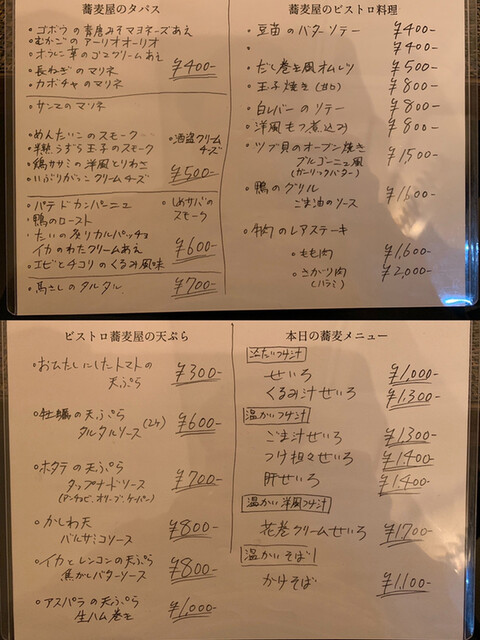 蕎麦屋のタパス
・ゴボウの青唐みそマヨネーズあえ
・むかごのアーリオオーリオ
・オクラに茸のゴマクリームあえ
・長ねぎのマリネ
・カボチャのマリネ
¥400-
・サンマのマリネ
・めんたいこのスモーク
・半熟うずら玉子のスモーク
・鶏ササミの洋風とりわさ
・いぶりがっこクリームチーズ
・酒盗クリーム
チーズ
¥500-
・パテドカンパーニュ
・鴨のロースト
・たいの炙りカルパッチョ
・イカのわたクリームあえ
・エビとチコリのくるみ風味
・しめサバの
スモーク
¥600-
・馬さしのタルタル
¥700-
蕎麦屋のビストロ料理
・豆苗のバターソテー ¥400-
・ ¥400-
・だし巻き風オムレツ ¥500-
・玉子焼き(甘口) ¥800-
・白レバーのソテー ¥800-
・洋風もつ煮込み ¥800-
・ツブ貝のオーブン焼き
ブルゴーニュ風
(ガーリックバター) ¥1500-
・鴨のグリル
ごま油のソース ¥1600-
・牛肉のレアステーキ
・もも肉 ¥1,600-
・さがり肉 ¥2,000-
(ハラミ)
ビストロ蕎麦屋の天ぷら
・おひたしにしたトマトの
天ぷら ¥300-
・牡蠣の天ぷら
タルタルソース (2ケ) ¥600-
・ホタテの天ぷら
タップナードソース
(アンチョビ、オリーブ、ケーパー) ¥700-
・かしわ天
バルサミコソース ¥800-
・イカとレンコンの天ぷら
焦がしバターソース ¥800-
・アスパラの天ぷら
生ハム巻き ¥1,000-
本日の蕎麦メニュー
冷たいつけ汁
せいろ ¥1,000-
くるみ汁せいろ ¥1,300-
温かいつけ汁
ごま汁せいろ ¥1300-
つけ担々せいろ ¥1,400-
肝せいろ ¥1,400-
温かい洋風つけ汁
花巻クリームせいろ ¥1,700-
温かいそば
かけそば ¥1,100-